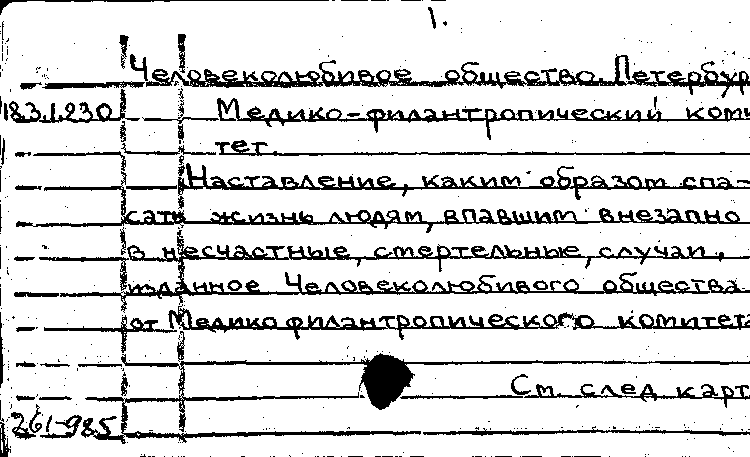 1.
Человеколюбивое общество. Петербур
183.1.230 Медико-филантропический коми
тет.
Наставление, каким образом спа-
сать жизнь людям, впавшим внезапно
в несчастные, смертельные, случаи,
изданное Человеколюбивого общества
от Медико филантропического комитета
См. след карт
261-985